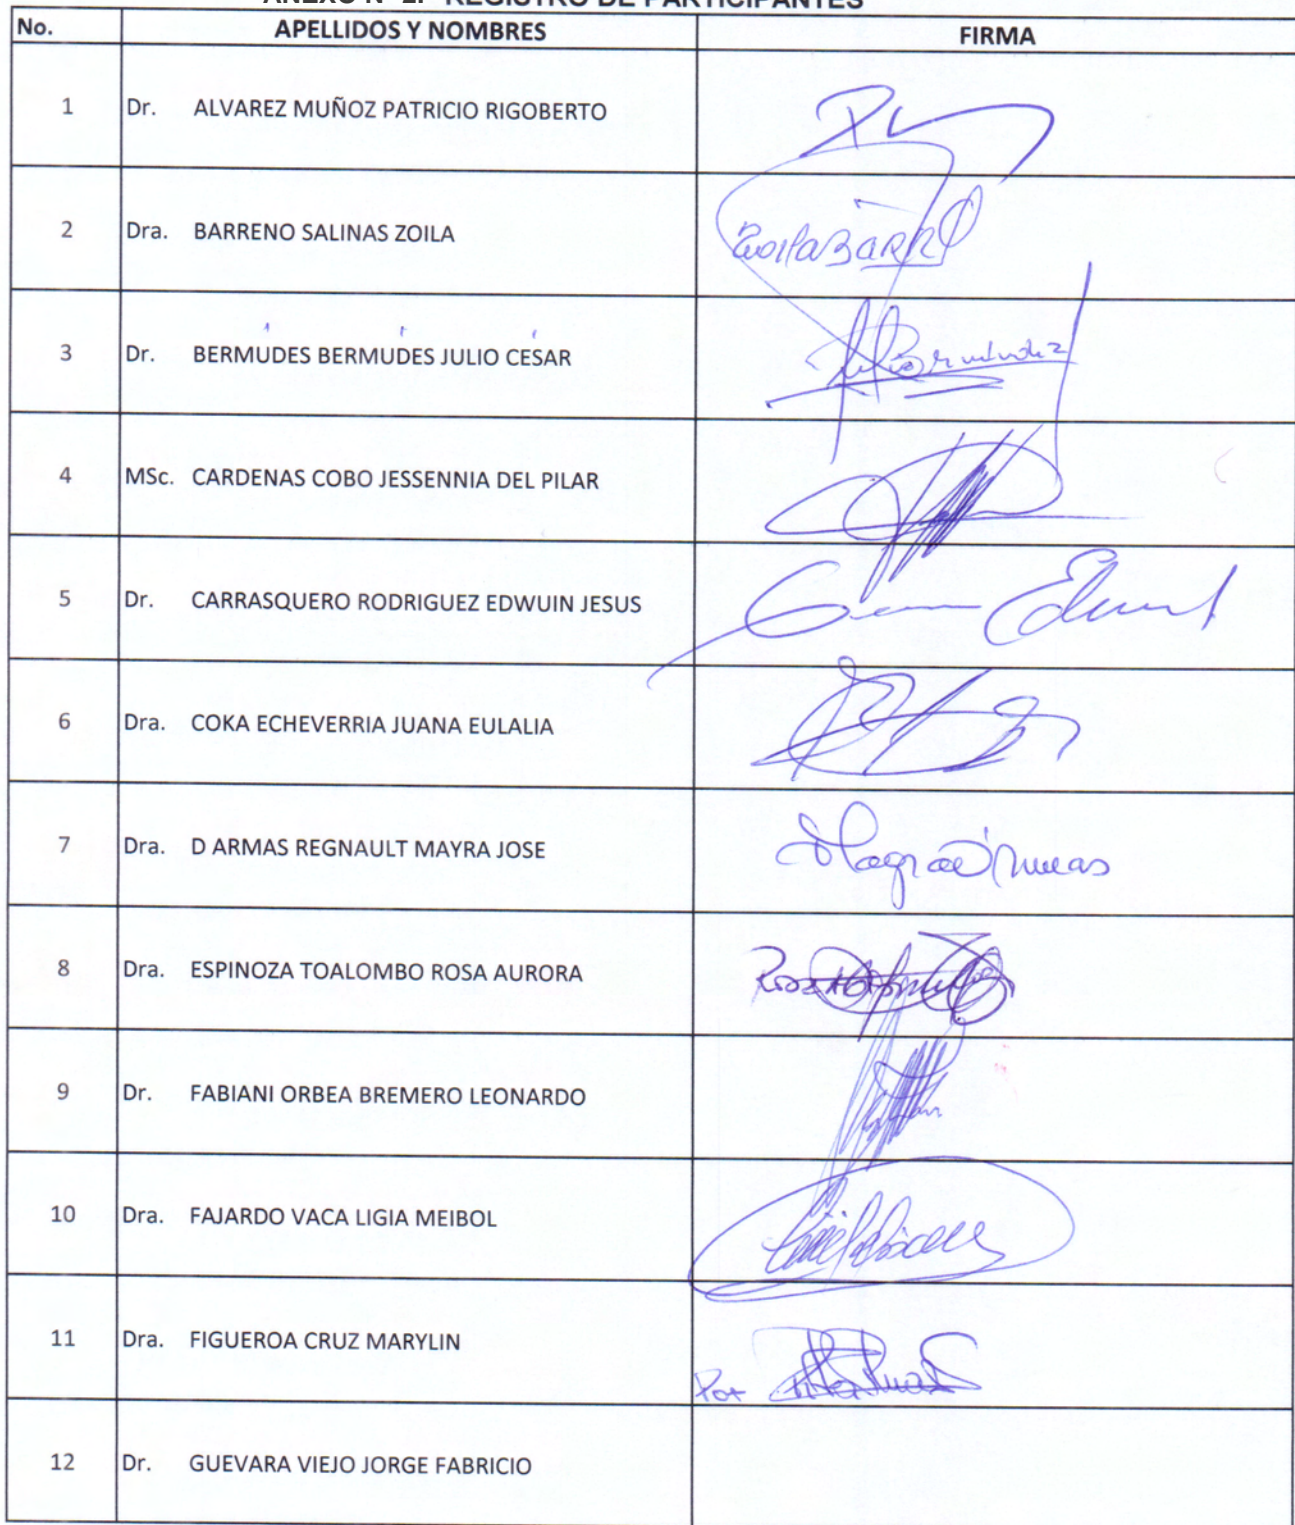 ANEXO N° 2. REGISTRO DE PARTICIPANTES
No. APELLIDOS Y NOMBRES FIRMA
1 Dr. ALVAREZ MUÑOZ PATRICIO RIGOBERTO
2 Dra. BARRENO SALINAS ZOILA
3 Dr. BERMUDES BERMUDES JULIO CESAR
4 MSc. CARDENAS COBO JESSENNIA DEL PILAR
5 Dr. CARRASQUERO RODRIGUEZ EDWUIN JESUS
6 Dra. COKA ECHEVERRIA JUANA EULALIA
7 Dra. D ARMAS REGNAULT MAYRA JOSE
8 Dra. ESPINOZA TOALOMBO ROSA AURORA
9 Dr. FABIANI ORBEA BREMERO LEONARDO
10 Dra. FAJARDO VACA LIGIA MEIBOL
11 Dra. FIGUEROA CRUZ MARYLIN Por
12 Dr. GUEVARA VIEJO JORGE FABRICIO